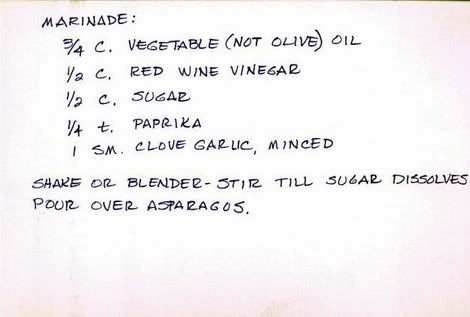 MARINADE:
3/4 C. VEGETABLE (NOT OLIVE) OIL
1/2 C. RED WINE VINEGAR
1/2 C. SUGAR
1/4 t. PAPRIKA
1 SM. CLOVE GARLIC, MINCED
SHAKE OR BLENDER-STIR TILL SUGAR DISSOLVES
POUR OVER ASPARAGOS.